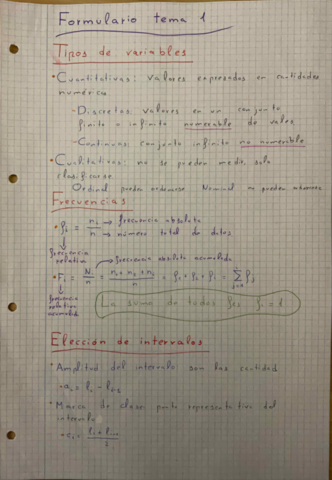 Formulario tema 1
Tipos de variables
• Cuantitativas: valores expresados en cantidades
numéricas
- Discretas: valores en un conjunto
finito o infinito numerable de vales
- Continuas: conjunto infinito no numerable
• Cualitativas: no se pueden medir, solo
clasificarse.
Ordinal pueden ordenarse Nominal no pueden
Frecuencias
• fi = ni / n → frecuencia absoluta
→ número total de datos
frecuencia
relativa
→ frecuencia absoluta acumulada
• Fi = Ni / n = n1 + n2 + ni / n = f1 + f2 + fi = Σ fj
j=1
frecuencia
relativa
acumulada
La suma de todos fi = 1
Elección de intervalos
• Amplitud del intervalo son las cantidad
→ ai = li - li-1
• Marca de clase: punto representativo del
intervalo
→ ci = li + li-1 / 2